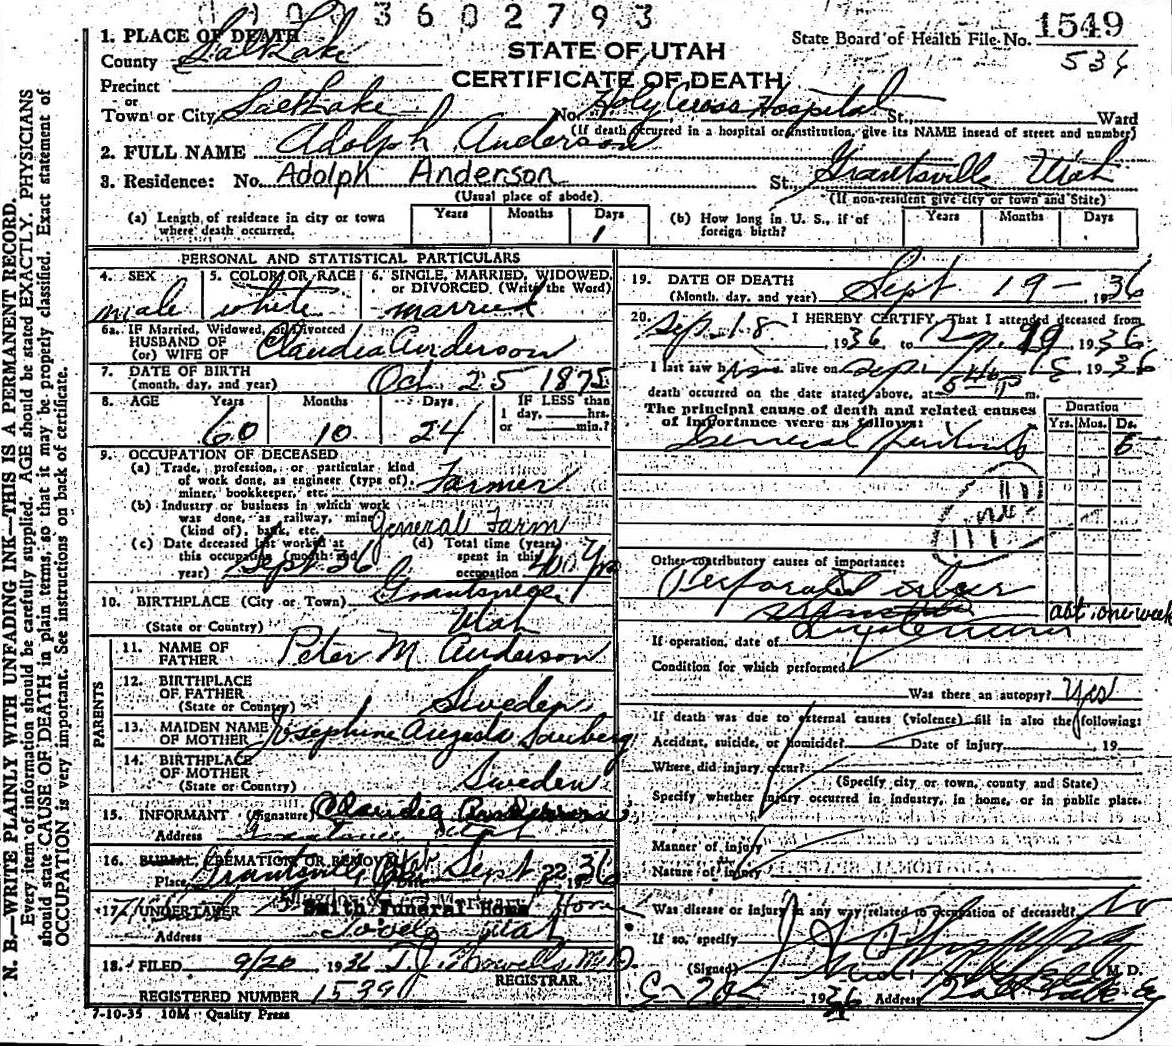 1003602793
1. PLACE OF DEATH
County Salt Lake
STATE OF UTAH
CERTIFICATE OF DEATH
State Board of Health File No. 1549
534
Precinct
or
Town or City Salt Lake No. Holy Cross Hospital St., Ward
(If death occurred in a hospital or institution, give its NAME insead of street and number)
2. FULL NAME Adolph Anderson
3. Residence: No. Adolph Anderson St., Grantsville Utah
(Usual place of abode) (If non-resident give city or town and State)
(a) Length of residence in city or town where death occurred. Years Months Days 1
(b) How long in U. S., if of foreign birth? Years Months Days
PERSONAL AND STATISTICAL PARTICULARS
4. SEX male
5. COLOR OR RACE white
6. SINGLE, MARRIED, WIDOWED, or DIVORCED, (Write the Word) married
6a. IF Married, Widowed, or Divorced
HUSBAND OF
(or) WIFE OF Claudia Anderson
7. DATE OF BIRTH
(month, day, and year) Oct. 25 1875
8. AGE Years 60 Months 10 Days 24 IF LESS than
1 day, hrs.
or min.?
9. OCCUPATION OF DECEASED
(a) Trade, profession, or particular kind
of work done, as engineer (type of),
miner, bookkeeper, etc. Farmer
(b) Industry or business in which work
was done, as railway, mine
(kind of), bank, etc. General Farm
(c) Date deceased last worked at
this occupation (month and
year) Sept 36
(d) Total time (years)
spent in this
occupation 40 Yrs
10. BIRTHPLACE (City or Town)
(State or Country) Utah
PARENTS
11. NAME OF
FATHER Peter M Anderson
12. BIRTHPLACE
OF FATHER
(State or Country) Sweden
13. MAIDEN NAME
OF MOTHER Josephine Augusta
14. BIRTHPLACE
OF MOTHER
(State or Country) Sweden
15. INFORMANT (Signature) Claudia Anderson
Address Utah
16. BURIAL, CREMATION OR REMOVAL
Place Grantsville Date Sept 22 1936
17. UNDERTAKER Smith Funeral Home
Address Tooele Utah
18. FILED 9/20 1936 T. J. Howells M.D.
REGISTRAR.
REGISTERED NUMBER 1539
7-10-35 10M Quality Press
19. DATE OF DEATH
(Month, day, and year) Sept 19 - 1936
20. I HEREBY CERTIFY, That I attended deceased from
Sep. 18 1936 to Sep. 19 1936
I last saw him alive on Sep. 1936
death occurred on the date stated above, at m.
The principal cause of death and related causes
of importance were as follows:
Duration
Yrs. Mos. Ds.
General 5
Other contributory causes of importance:
Perforated ulcer
abt. one week
If operation, date of
Condition for which performed
Was there an autopsy? Yes
If death was due to external causes (violence) fill in also the following:
Accident, suicide, or homicide? Date of injury 19
Where did injury occur?
(Specify city or town, county and State)
Specify whether injury occurred in industry, in home, or in public place.
Manner of injury
Nature of injury
Was disease or injury in any way related to occupation of deceased? No
If so, specify
(Signed) M. D.
1936 Address Salt Lake City
N. B.—WRITE PLAINLY WITH UNFADING INK—THIS IS A PERMANENT RECORD.
Every item of information should be carefully supplied. AGE should be stated EXACTLY. PHYSICIANS
should state CAUSE OF DEATH in plain terms, so that it may be properly classified. Exact statement of
OCCUPATION is very important. See instructions on back of certificate.